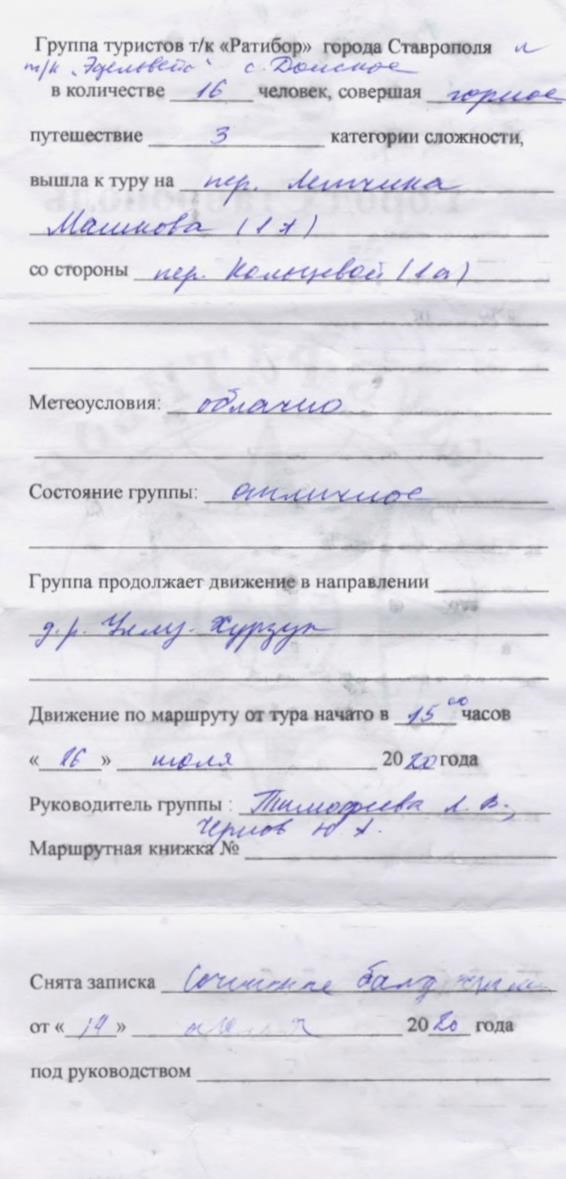 Группа туристов т/к «Ратибор» города Ставрополя и
т/к „Эдельвейс“ с. Донское
в количестве 16 человек, совершая горное
путешествие 3 категории сложности,
вышла к туру на пер. Летчика
Машкова (1А)
со стороны пер. Кольцевой (1а)
Метеоусловия: облачно
Состояние группы: отличное
Группа продолжает движение в направлении
д.р. Уллу-Хурзук
Движение по маршруту от тура начато в 15 00 часов
«16» июля 2020 года
Руководитель группы : Тимофеева Л. В.,
Чернов Ю. А.
Маршрутная книжка №
Снята записка
от «14» 2020 года
под руководством